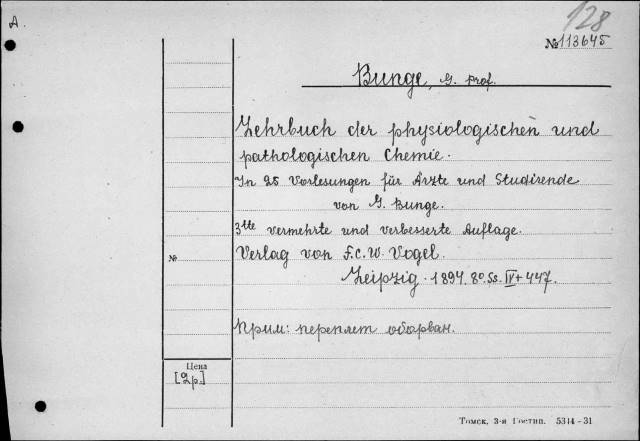 A.
128
№ 113645
Bunge, G. Prof.
Lehrbuch der physiologischen und
pathologischen Chemie.
In 25 Vorlesungen für Ärzte und Studirende
von G. Bunge.
3tte vermehrte und verbesserte Auflage.
№
Verlag von F.C.W. Vogel.
Leipzig. 1894. 8o. Ss. IV + 447.
Прим: переплет оборван.
Цена
[2р.]
Томск, 3-я Гостип. 5314-31